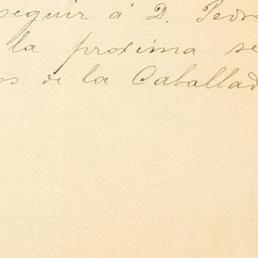 seguir á D. Pedr
la proxima se
os de la Caballad